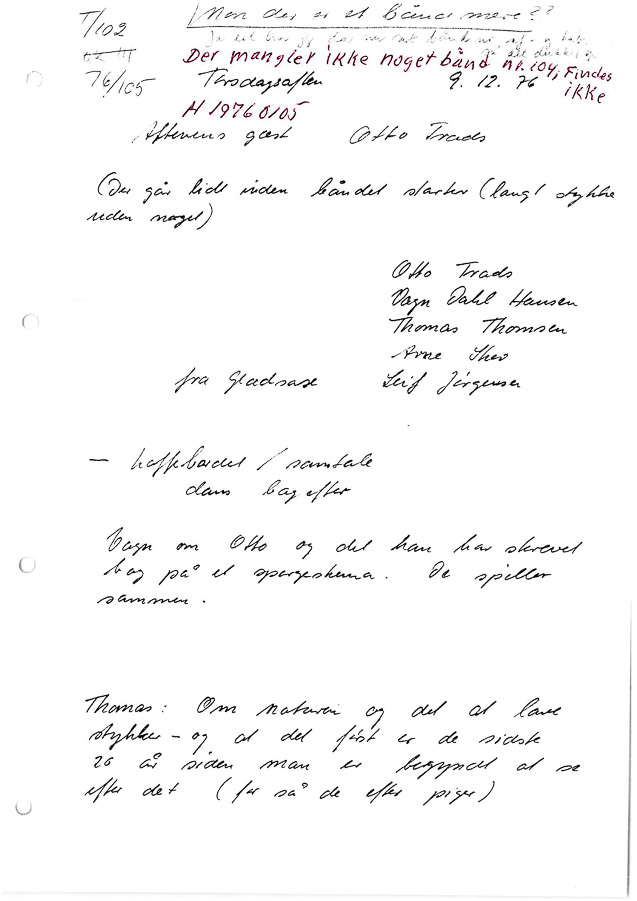 T/102
Mon der er et bånd mere??
Der mangler ikke noget bånd nr. 104, Findes
ikke
76/105 Torsdagsaften 9. 12. 76
H 1976 0105
Aftenens gæst Otto Trads
(Der går lidt inden båndet starter (langt stykke
uden noget)
Otto Trads
Vagn Dahl Hansen
Thomas Thomsen
Arne
fra Gladsaxe Leif Jørgensen
— kaffebordet / samtale
dans bagefter
Vagn om Otto og det han har skrevet
bag på et spørgeskema. De spiller
sammen.
Thomas: Om naturen og det at lave
stykker - og at det først er de sidste
20 år siden man er begyndt at se
efter det (før så de efter piger)